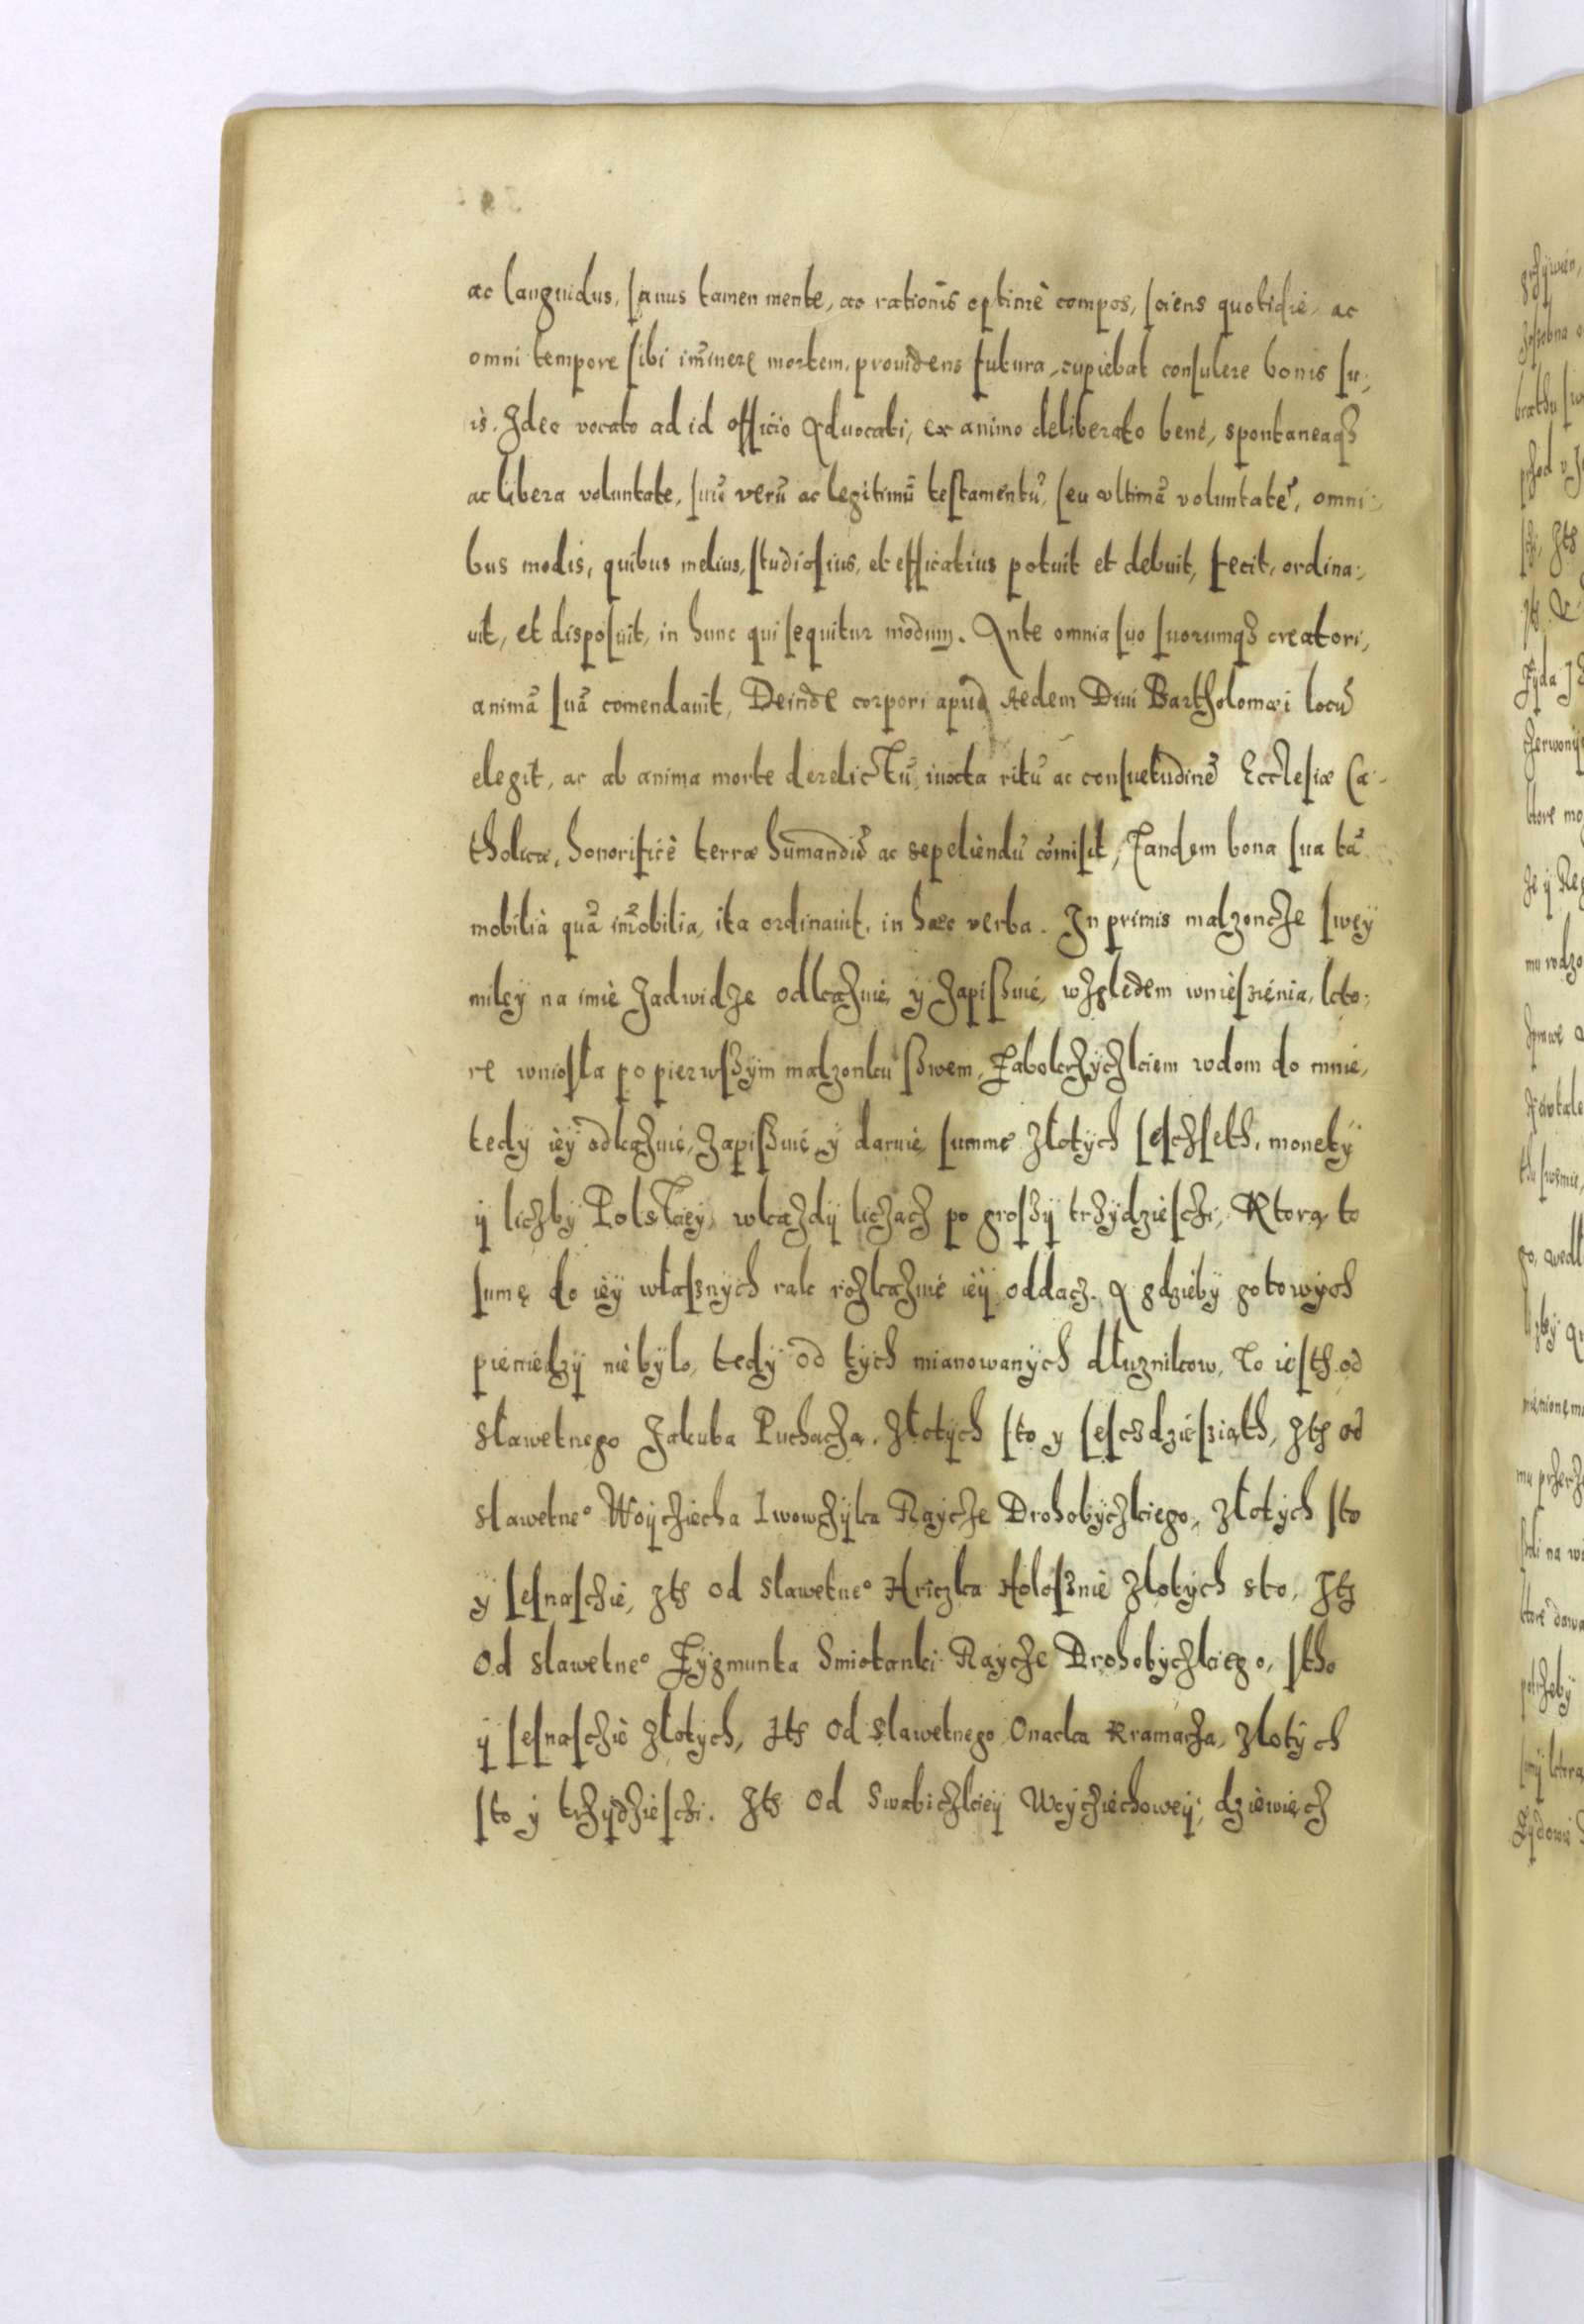 ac languidus, ſanus tamen mente, ac rationis optimè compos, ſciens quotidie, ac
omni tempore ſibi im̃inere mortem, prouidens futura, cupiebat conſulere bonis ſu:
is. Ideo vocato ad id officio Aduocati, ex animo deliberato bene, spontaneaqȝ
ac libera voluntate, ſuũ verũ ac legitimũ teſtamentũ, ſeu vltimã voluntatẽ, omni:
bus modis, quibus melius, ſtudioſius, et efficatius potuit et debuit, fecit, ordina:
uit, et dispoſuit, in hunc qui ſequitur modum. Ante omnia ſuo ſuorumqȝ creatori,
animã ſuã comendauit, Deinde corpori apud Aedem Diui Bartholomæi locũ
elegit, ac ab anima morte derelictũ, iuxta ritũ ac conſuetudinẽ Eccleſiæ Ca:
tholicæ, honorificè terræ humandũ ac sepeliendũ cõmiſit, Tandem bona ſua tã
mobilia quã im̃obilia, ita ordinauit, in hæc verba. In primis malzoncze ſwey
miley na imiè Jadwidze odkazuié, y zapiſzuié, wzgledem wnièſzienia, kto:
re wnioſla po pierwſzym malzonku ſzwem, Zabokrzyczkiem wdom do mnié,
tedy iéy odkazuié, zapiſzuié y daruié ſumme zlotych ſeſczſeth, monety
y liczby Polskiey, wkazdy liczacz po groſzy trzydzieſczi, Ktorą to
ſumę do iéy wlaſznych rak rozkazuié iéy oddacz. A gdzieby gotowych
pieniedzy niebylo, tedy od tych mianowanych dluznikow, To ieſth od
slawetnego Jakuba Puchacza, zlotych ſto y ſeſczdzieſziąth, Ith od
slawetneº Woycziecha Lwowczyka Raycze Drohobyczkiego, zlotych ſto
y ſeſnaſczie, Ith od slawetneº Hriczka Holoſznie zlotych sto, Ith
od slawetneº Zygmunta Smiotanki Raycze Drohobyczkiego, ſtho
y ſeſnaſczie zlotych, Ith od slawetnego Onacka Kramarza, zlotych
ſto y trzydzieſchi. Ith od Swabiczkiey Woycziechowey, dziewięcz